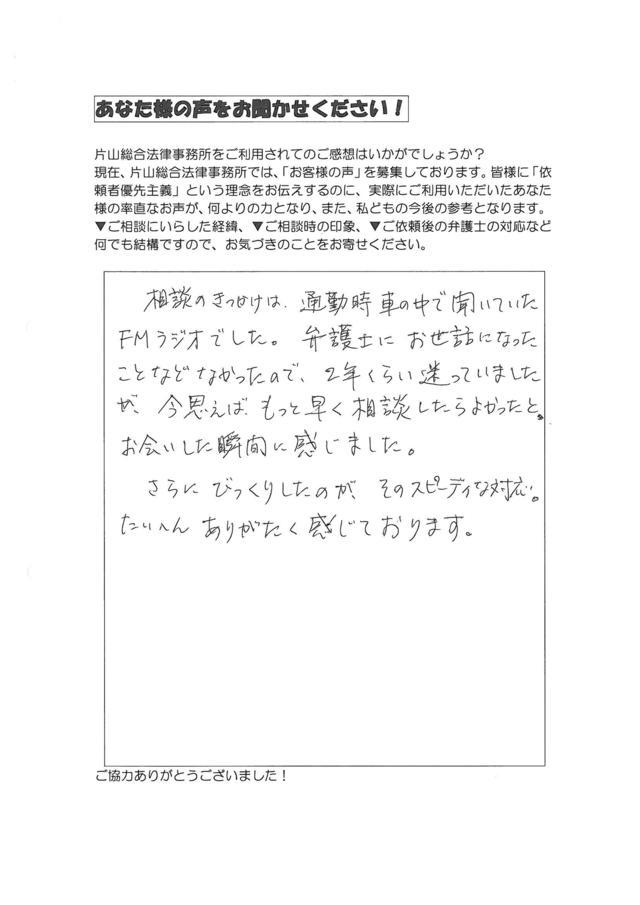 あなた様の声をお聞かせください！
片山総合法律事務所をご利用されてのご感想はいかがでしょうか？
現在、片山総合法律事務所では、「お客様の声」を募集しております。皆様に「依
頼者優先主義」という理念をお伝えするのに、実際にご利用いただいたあなた
様の率直なお声が、何よりの力となり、また、私どもの今後の参考となります。
▼ご相談にいらした経緯、▼ご相談時の印象、▼ご依頼後の弁護士の対応など
何でも結構ですので、お気づきのことをお寄せください。
相談のきっかけは、通勤時車の中で聞いていた
FMラジオでした。弁護士にお世話になった
ことなどなかったので、2年くらい迷っていました
が、今思えば、もっと早く相談したらよかったと、
お会いした瞬間に感じました。
さらにびっくりしたのが、そのスピーディな対応。
たいへんありがたく感じております。
ご協力ありがとうございました！